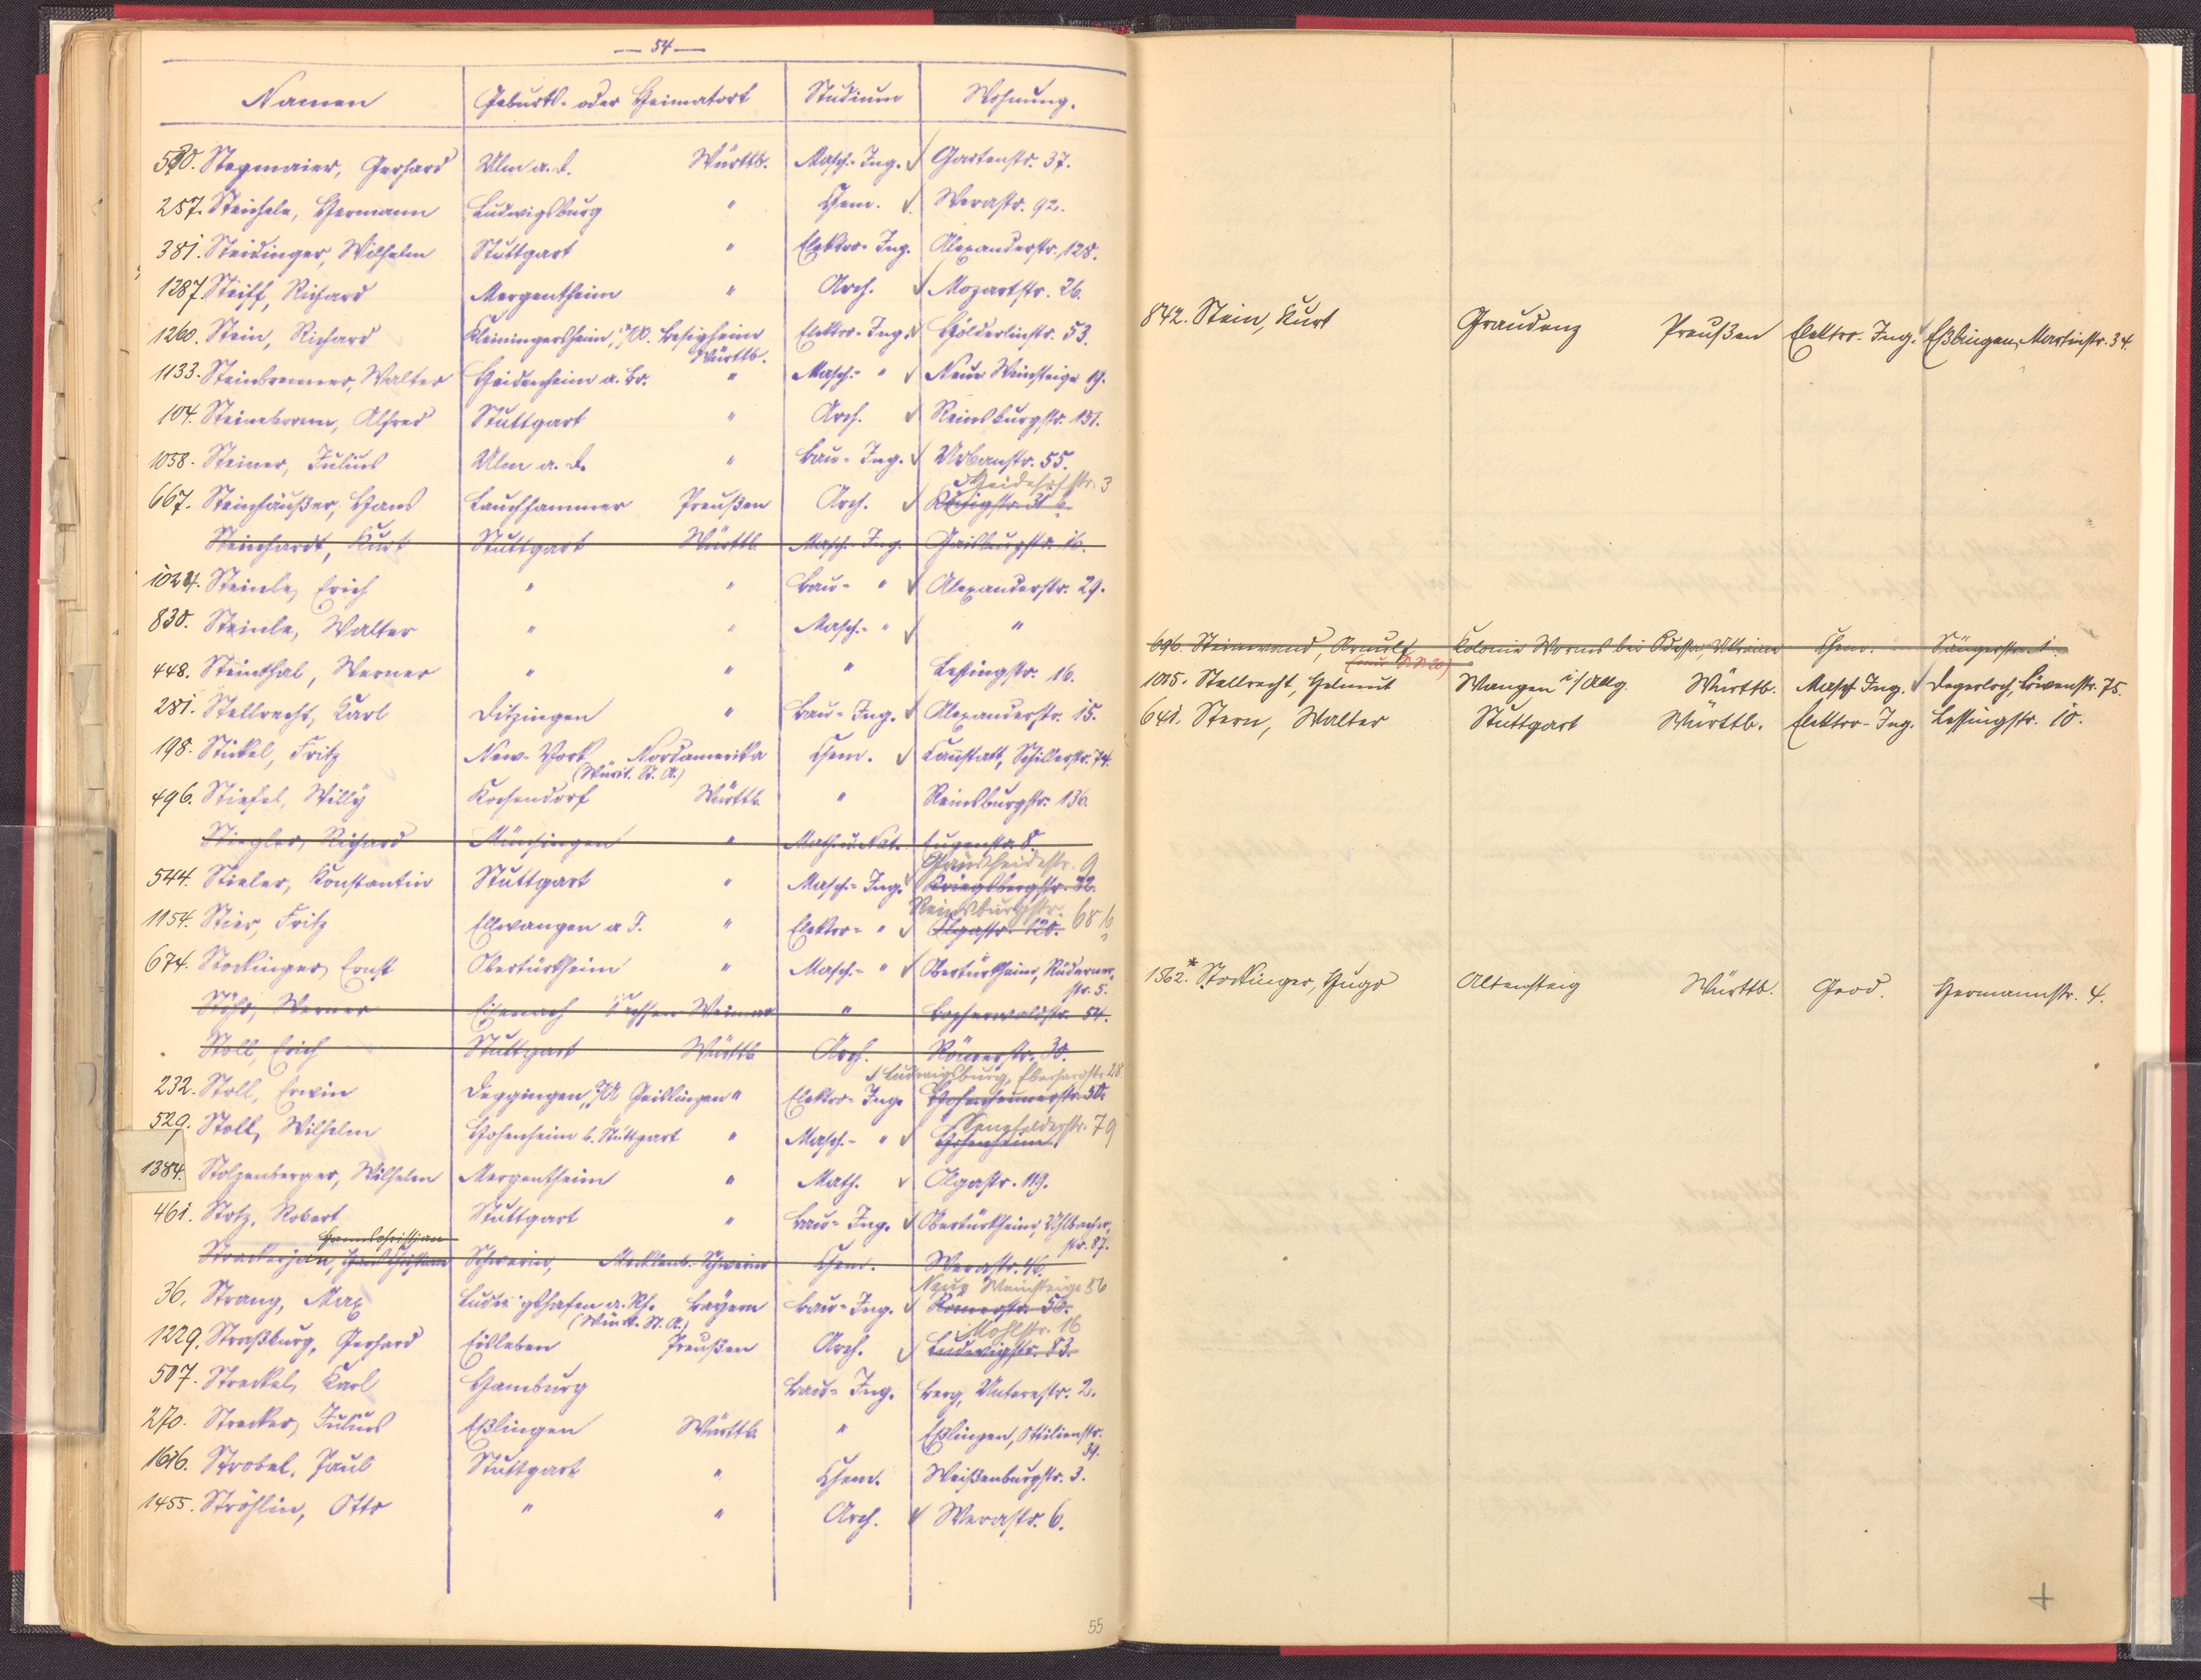 — 54 —
Namen Geburts- oder Heimatort Studium Wohnung.
580. Stegmaier, Gerhard Ulm a. D. Württb. Masch.-Ing. ✓ Gartenstr. 37.
257. Steichele, Hermann Ludwigsburg " Chem. ✓ Werastr. 92.
381. Steidinger, Wilhelm Stuttgart " Elektro-Ing. Alexanderstr. 128.
1287. Steiff, Richard Mergentheim " Arch. ✓ Mozartstr. 26.
1260. Stein, Richard Kleiningersheim, O/A. Besigheim Württb. Elektro-Ing. ✓ Hölderlinstr. 53.
1133. Steinbrenner, Walter Heidenheim a. Br. " Masch.- " ✓ Neue Weinsteige 19.
104. Steinebronn, Alfred Stuttgart " Arch. ✓ Reinsburgstr. 151.
1058. Steiner, Julius Ulm a. D. " Bau-Ing. ✓ Urbanstr. 55.
Heidehofstr. 3
667. Steinhäußer, Hans Lauchhammer Preußen Arch. ✓
Steinhardt, Kurt Stuttgart Württb. Masch.-Ing. Gaisburgstr. 16.
1024. Steinle, Erich " " Bau- " ✓ Alexanderstr. 29.
830. Steinle, Walter " " Masch.- " ✓ "
448. Steinthal, Werner " " " Lessingstr. 16.
281. Stellrecht, Karl Ditzingen " Bau-Ing. ✓ Alexanderstr. 15.
198. Stickel, Fritz New-York Nordamerika Chem. ✓ Cannstatt, Schillerstr. 74.
(Württ. St. A.)
496. Stiefel, Willy Kochendorf Württb. " Reinsburgstr. 136.
Stiegler, Richard Münsingen " Math. u. Nat. Eugenstr. 8.
Gänsheidestr. 9
544. Stieler, Konstantin Stuttgart " Masch.-Ing. ✓ Kriegsbergstr. 32.
Reinsburgstr. 68 b
1154. Stier, Fritz Ellwangen a J. " Elektro- " ✓ Olgastr. 120.
674. Stockinger, Ernst Obertürkheim " Masch.- " ✓ Obertürkheim, Rüderner-
str. 5.
Stöhr, Werner Eisenach Sachsen-Weimar " Bopserwaldstr. 54.
Stoll, Erich Stuttgart Württb. Arch. Römerstr. 30.
✓ Ludwigsburg, Eberhardstr. 28
232. Stoll, Erwin Deggingen, O/A Geislingen " Elektro-Ing. Hohenheimerstr. 50.
Senefelderstr. 79
529. Stoll, Wilhelm Hohenheim b. Stuttgart " Masch.- " ✓ Hohenheim
1384. Stolzenberger, Wilhelm Mergentheim " Math. ✓ Olgastr. 119.
461. Stotz, Robert Stuttgart " Bau-Ing. ✓ Obertürkheim, Uhlbacher-
str. 87.
Hanschristian
Strackerjan, Hans Christian Schwerin, Mecklenb.-Schwerin Chem. Werastr. 46.
Neue Weinsteige 56
36. Strang, Max Ludwigshafen a. Rh. Bayern Bau-Ing. ✓ Römerstr. 50.
(Württ. St. A.)
Mohlstr. 16
1229. Straßburg, Gerhard Eisleben Preußen Arch. ✓ Ludwigstr. 83.
507. Streckel, Karl Hamburg Bau-Ing. Berg, Unterestr. 2.
270. Strecker, Julius Eßlingen Württb. " Eßlingen, Ottilienstr.
34.
1616. Strobel, Paul Stuttgart " Chem. Weißenburgstr. 3.
1455. Ströhlin, Otto " " Arch. ✓ Werastr. 6.
55
842. Stein, Kurt Graudenz Preußen Elektro-Ing. ✓ Eßlingen, Martinstr. 34.
696. Steinwand, Arnulf Kolonie Worms bei Odessa, Ukraine Chem. Sängerstr. 1.
1015. Stellrecht, Helmut Wangen i/Allg. Württb. Masch.-Ing. ✓ Degerloch, Löwenstr. 75.
641. Stern, Walter Stuttgart Württb. Elektro-Ing. Lessingstr. 10.
1562.* Stockinger, Hugo Altensteig Württb. Geod. Hermannstr. 4.